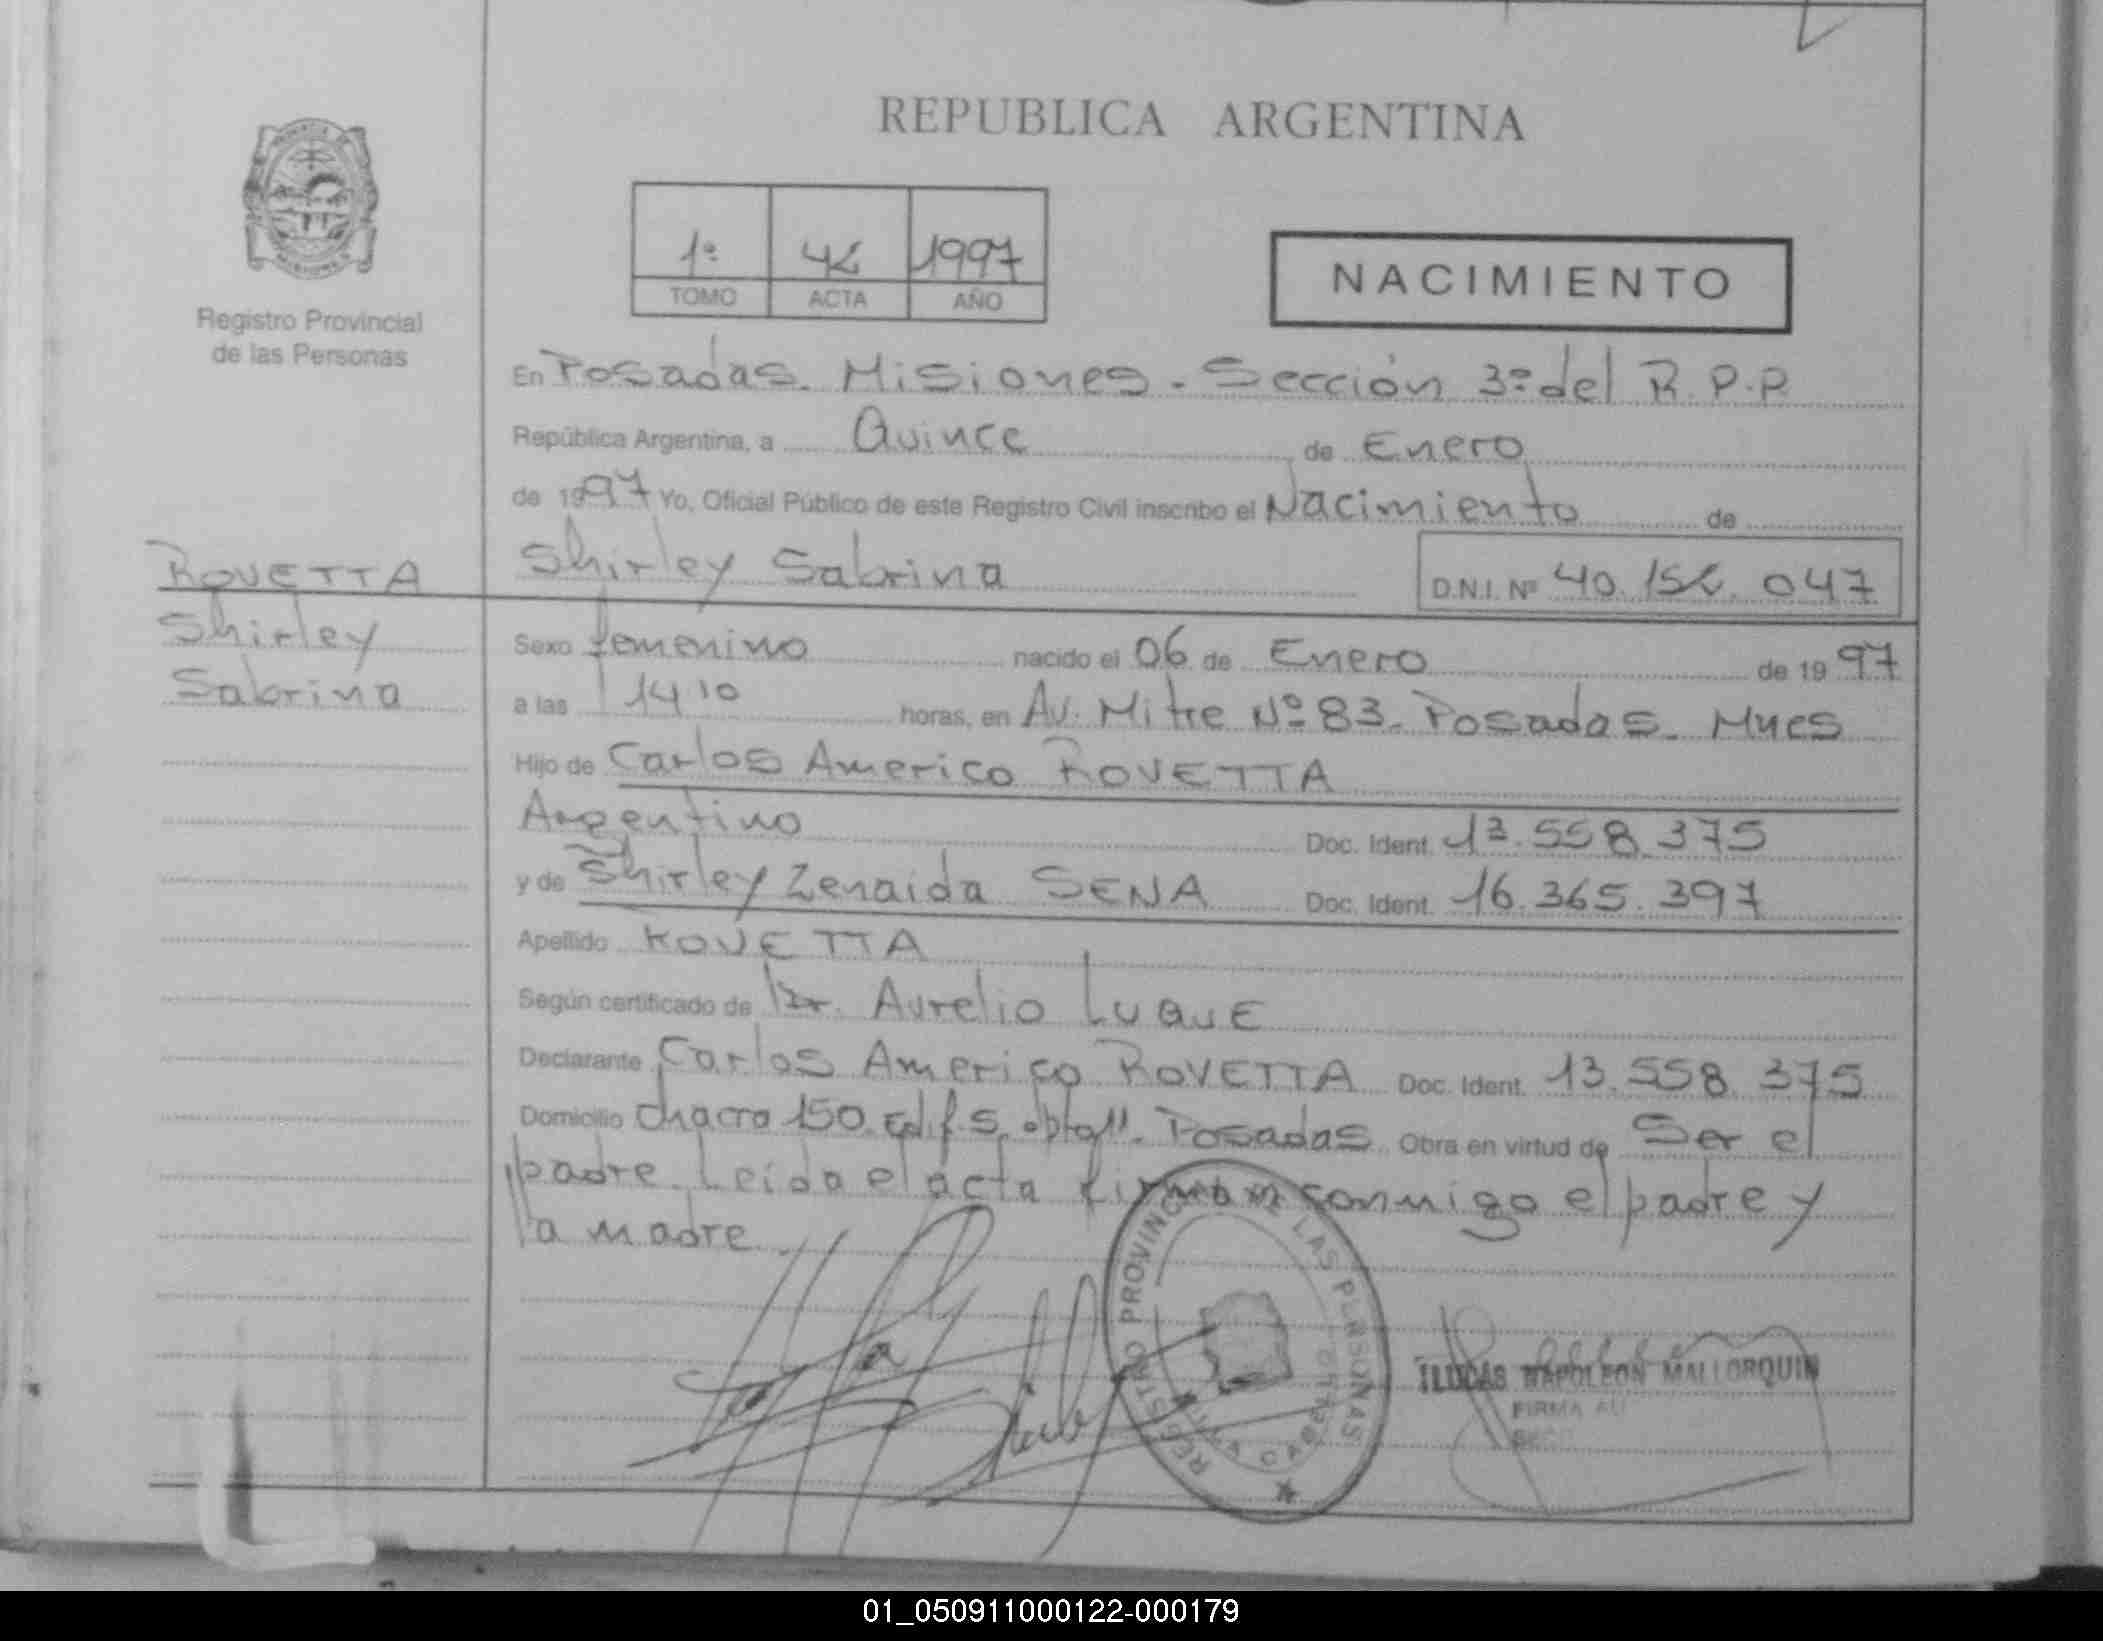 REPUBLICA ARGENTINA
1º 1997
TOMO ACTA AÑO
NACIMIENTO
Registro Provincial
de las Personas
En Posadas. Misiones. Sección 3º del R.P.P
República Argentina, a Quince de Enero
de 1997 Yo, Oficial Público de este Registro Civil inscribo el Nacimiento de
ROVETTA
Shirley
Sabrina
Shirley Sabrina
D.N.I. Nº 40. 047
Sexo femenino nacido el 06 de Enero de 1997
a las 14 10 horas, en Av. Mitre Nº 83. Posadas. Mnes
Hijo de Carlos Americo ROVETTA
Argentino Doc. Ident. 13.558.375
y de Shirley Zenaida SENA Doc. Ident. 16.365.397
Apellido ROVETTA
Según certificado de Dr. Aurelio LUQUE
Declarante Carlos Americo ROVETTA Doc. Ident. 13.558.375
Domicilio chacra 150. Posadas Obra en virtud de Ser el
padre. Leida el acta firman conmigo el padre y
la madre.
REGISTRO PROVINCIAL DE LAS PERSONAS
NAPOLEON MALLORQUIN
FIRMA AU
01_050911000122-000179